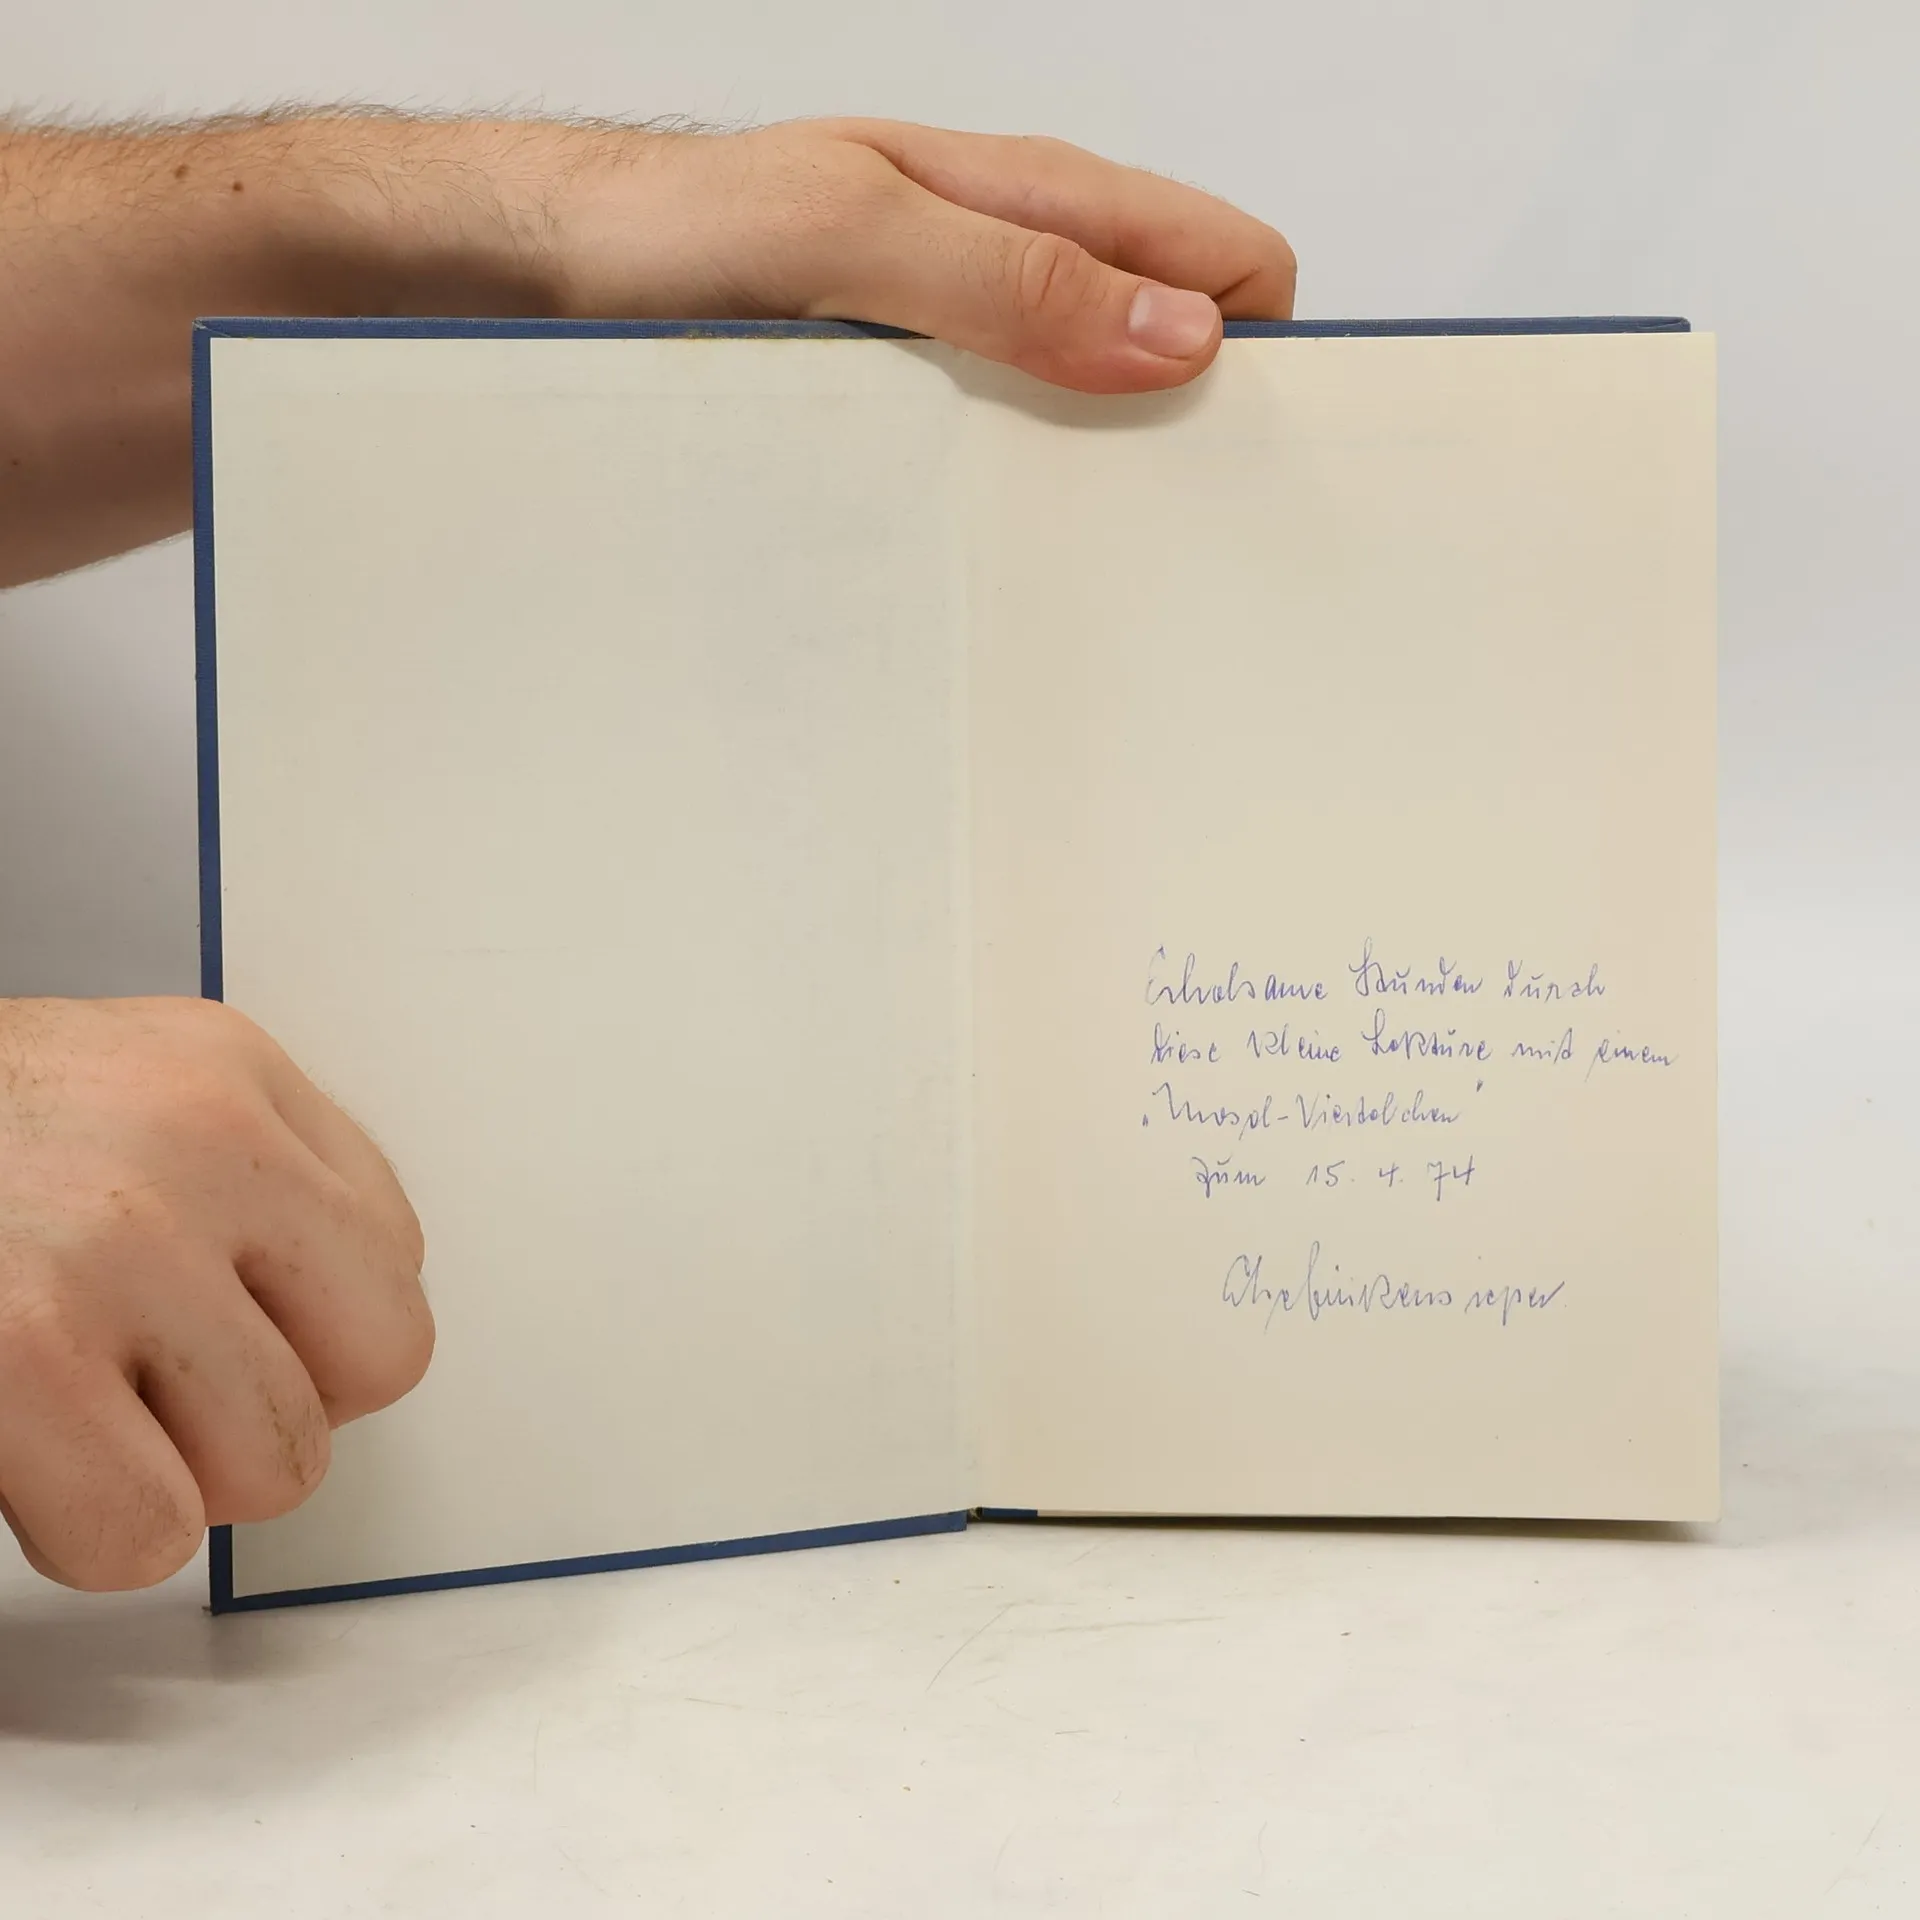 Erholsame Stunden durch
diese kleine Lektüre mit einem
„Mosel-Viertelchen"
zum 15. 4. 74